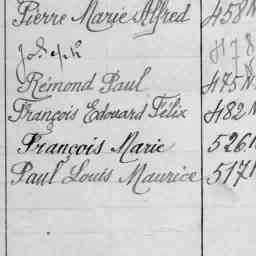 Pierre Marie Alfred 458 N
Joseph 478
Rémond Paul 475 N
François Edouard Félix 482 N
François Marie 526 N
Paul Louis Maurice 517 N